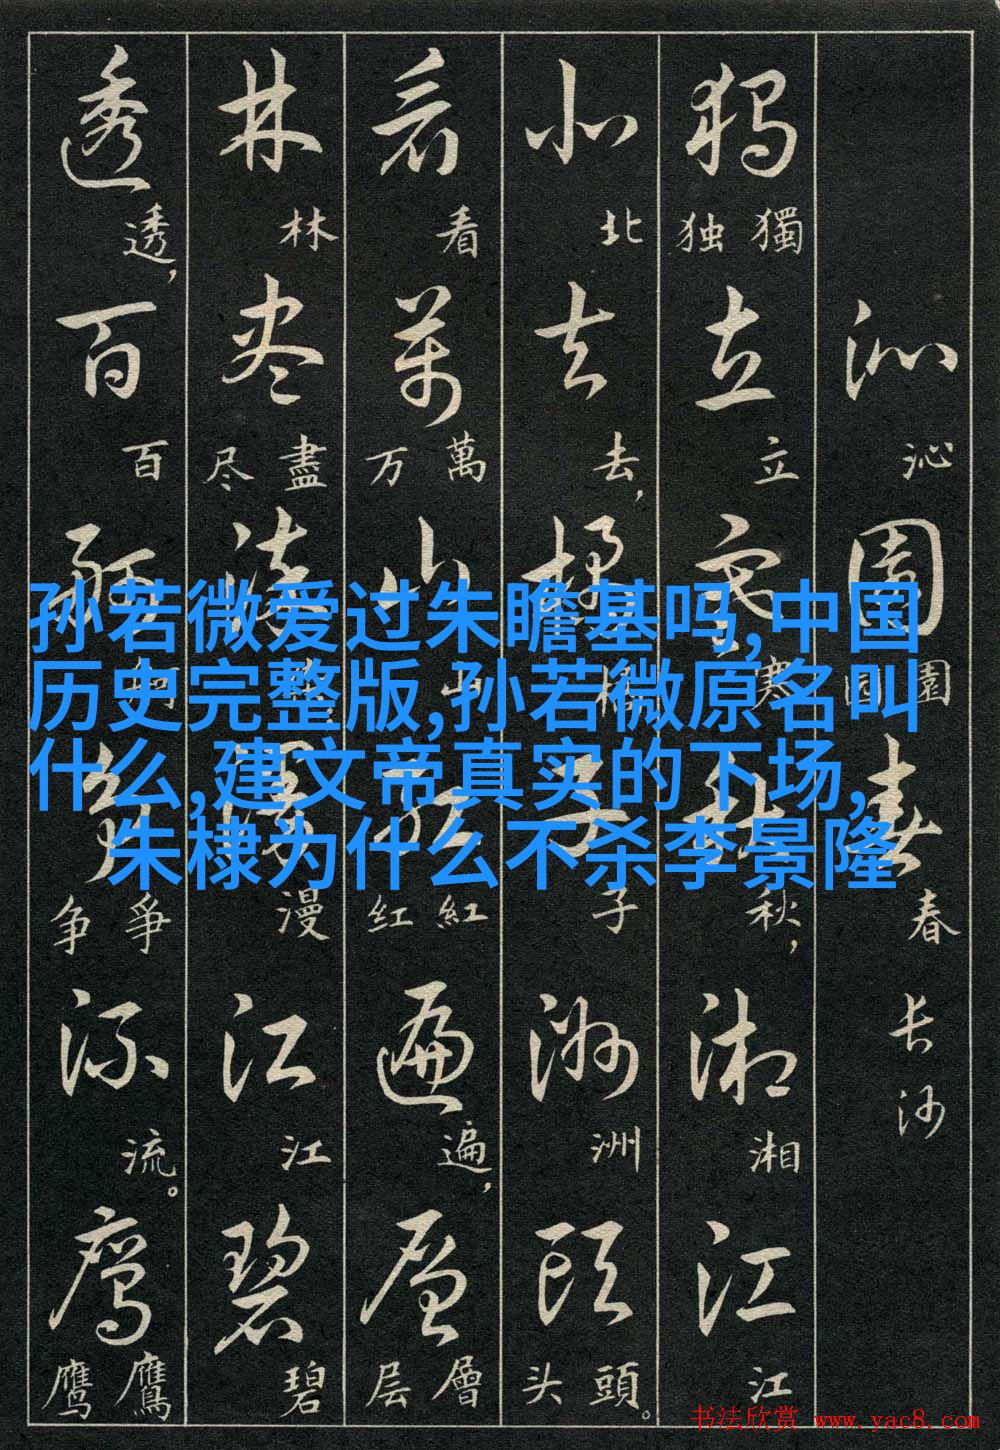 沁园春
沁 園 园 春
长沙
独立寒秋湘江
獨 独 立 寒 秋， 湘 江
北去橘子洲头
北 去， 橘 子 洲 頭 头。
看万山红遍层
看 萬 万 山 紅 红 遍， 層 层
林尽漫江碧
林 盡 尽 漫 江 碧
透百舸争流鹰
透， 百 舸 爭 争 流。 鷹 鹰
孙若微爱过朱瞻基吗,中国
历史完整版,孙若微原名叫
什么,建文帝真实的下场,
朱棣为什么不杀李景隆
书法欣赏 www.yac8.com